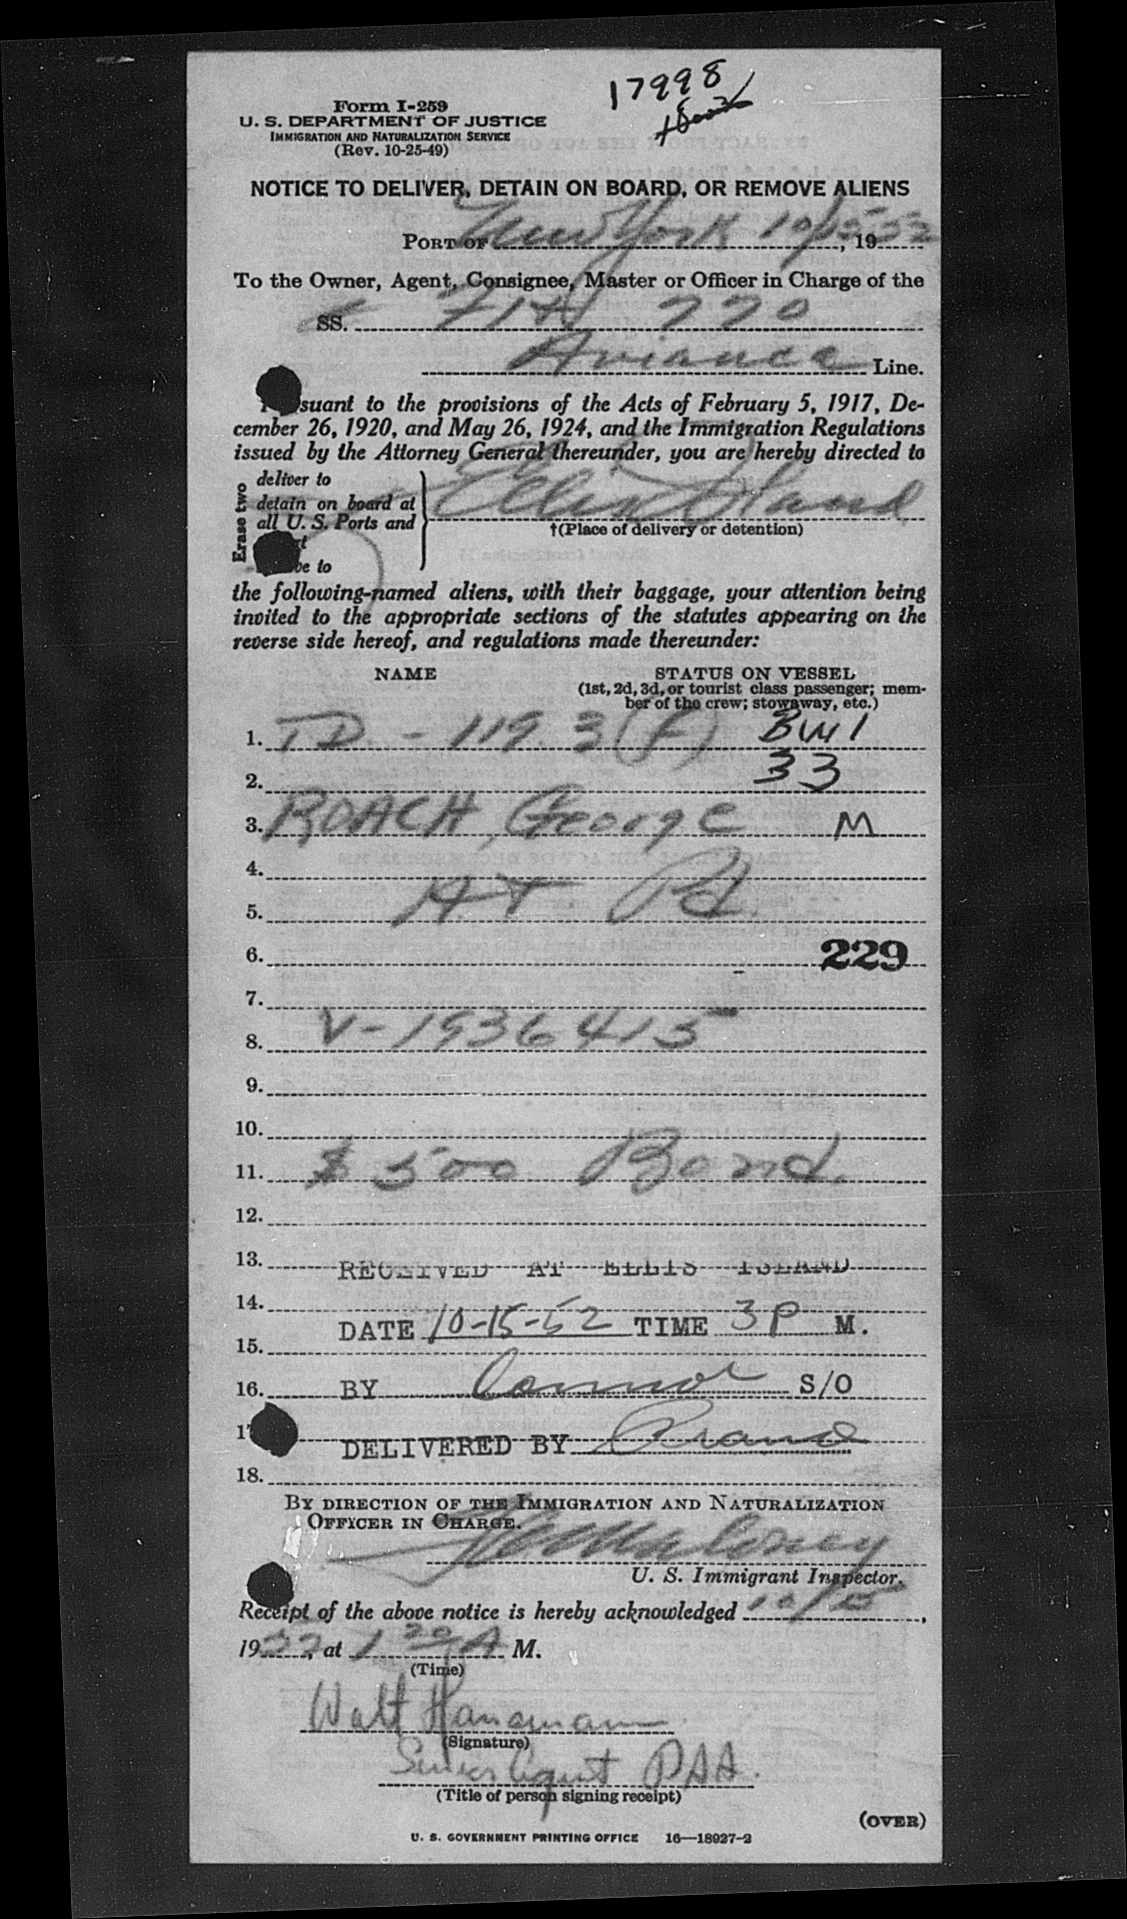 17998
Form I-259
U. S. DEPARTMENT OF JUSTICE
IMMIGRATION AND NATURALIZATION SERVICE
(Rev. 10-25-49)
NOTICE TO DELIVER, DETAIN ON BOARD, OR REMOVE ALIENS
PORT OF New York 10/15, 19 52
To the Owner, Agent, Consignee, Master or Officer in Charge of the
SS. Flt 770
Avianca Line.
suant to the provisions of the Acts of February 5, 1917, De-
cember 26, 1920, and May 26, 1924, and the Immigration Regulations
issued by the Attorney General thereunder, you are hereby directed to
Erase two
deliver to
detain on board at
all U. S. Ports and
Ellis Island
†(Place of delivery or detention)
to
the following-named aliens, with their baggage, your attention being
invited to the appropriate sections of the statutes appearing on the
reverse side hereof, and regulations made thereunder:
NAME STATUS ON VESSEL
(1st, 2d, 3d, or tourist class passenger; mem-
ber of the crew; stowaway, etc.)
1. TD - 119.3(f) BWI
2. 33
3. ROACH, George M
4.
5. HT Pd
6. 229
7.
8. V-1936415
9.
10.
11. $ 500 Bond.
12.
13. RECEIVED AT ELLIS ISLAND
14. DATE 10-15-52 TIME 3 P M.
15.
16. BY Connor S/O
DELIVERED BY
18.
BY DIRECTION OF THE IMMIGRATION AND NATURALIZATION
OFFICER IN CHARGE.
Maloney
U. S. Immigrant Inspector.
Receipt of the above notice is hereby acknowledged 10/15,
19 52, at 1 20 A M.
(Time)
Walt
(Signature)
Agent PAA.
(Title of person signing receipt)
(OVER)
U. S. GOVERNMENT PRINTING OFFICE 16—18927-2